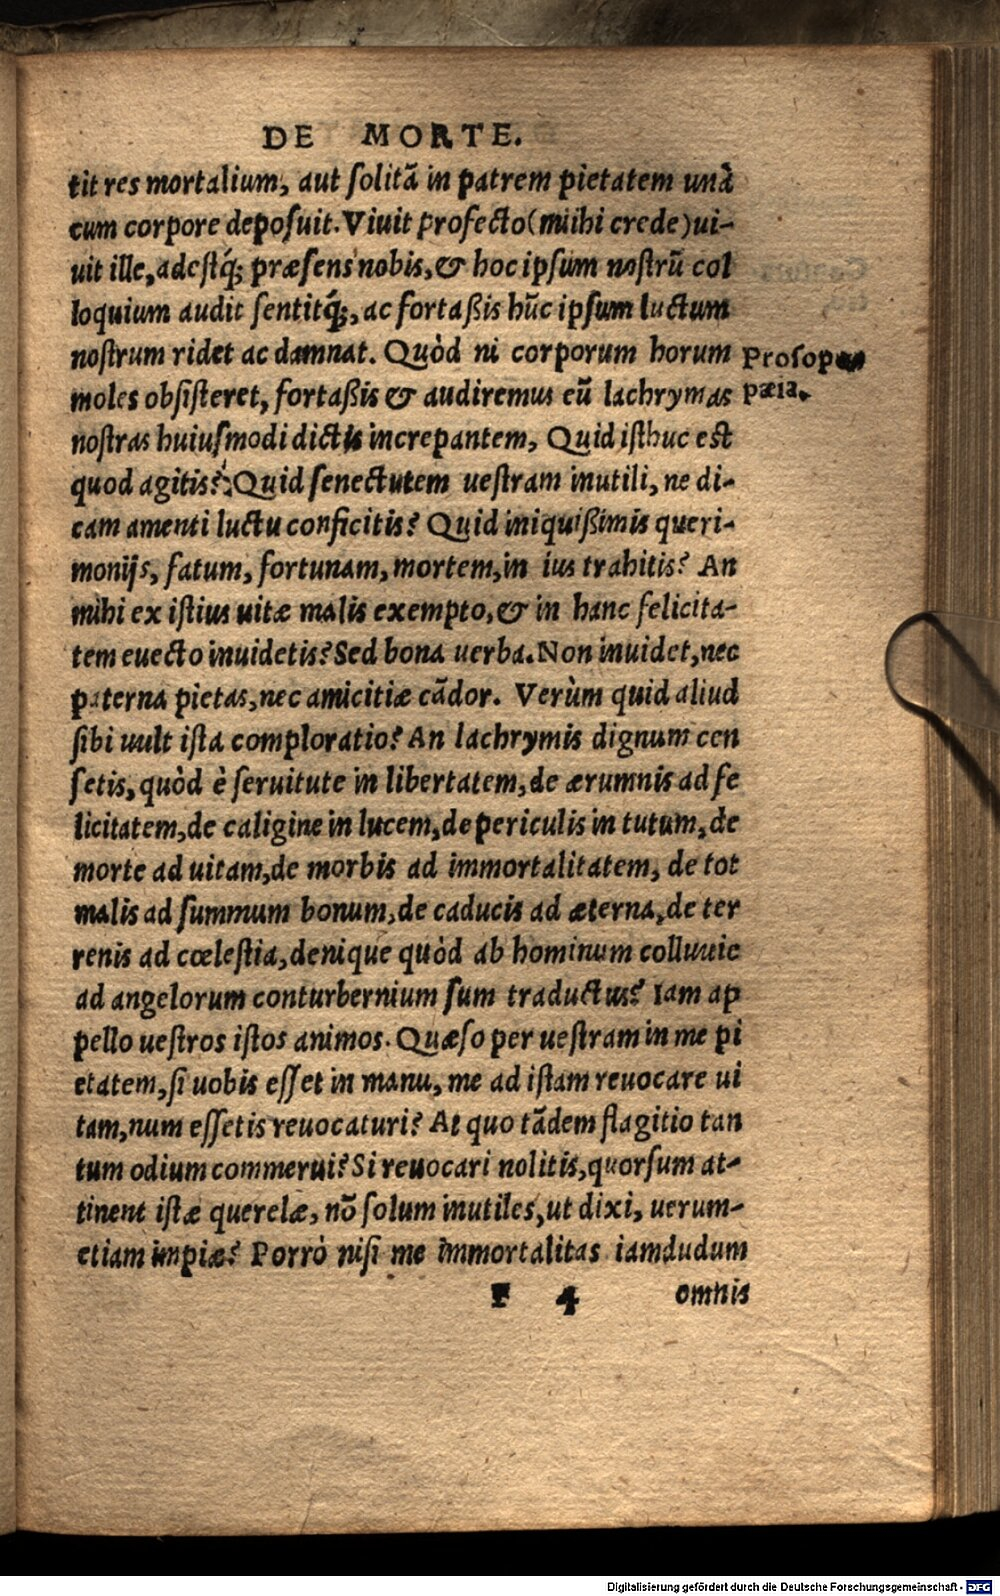 DE MORTE.
tit res mortalium, aut ſolitā in patrem pietatem unà
cum corpore depoſuit. Viuit profecto (mihi crede) ui-
uit ille, adeſtq́; præſens nobis, & hoc ipſum noſtrū col
loquium audit ſentitq́;, ac fortaßis hūc ipſum luctum
noſtrum ridet ac damnat. Quòd ni corporum horum
Proſopo
moles obſiſteret, fortaßis & audiremus eū lachrymas
pœia.
noſtras huiuſmodi dictis increpantem, Quid iſthuc eſt
quod agitis? Quid ſenectutem ueſtram inutili, ne di-
cam amenti luctu conficitis? Quid iniquißimis queri-
monijs, fatum, fortunam, mortem, in ius trahitis? An
mihi ex iſtius uitæ malis exempto, & in hanc felicita-
tem euecto inuidetis? Sed bona uerba. Non inuidet, nec
paterna pietas, nec amicitiæ cādor. Verùm quid aliud
ſibi uult iſta comploratio? An lachrymis dignum cen
ſetis, quòd è ſeruitute in libertatem, de ærumnis ad fe
licitatem, de caligine in lucem, de periculis in tutum, de
morte ad uitam, de morbis ad immortalitatem, de tot
malis ad ſummum bonum, de caducis ad æterna, de ter
renis ad cœleſtia, denique quòd ab hominum colluuie
ad angelorum conturbernium ſum traductus? Iam ap
pello ueſtros iſtos animos. Quæſo per ueſtram in me pi
etatem, ſi uobis eſſet in manu, me ad iſtam reuocare ui
tam, num eſſetis reuocaturi? At quo tādem flagitio tan
tum odium commerui? Si reuocari nolitis, quorſum at-
tinent iſtæ querelæ, nō ſolum inutiles, ut dixi, uerum-
etiam impiæ? Porrò niſi me immortalitas iamdudum
F 4 omnis
Digitalisierung gefördert durch die Deutsche Forschungsgemeinschaft - DFG